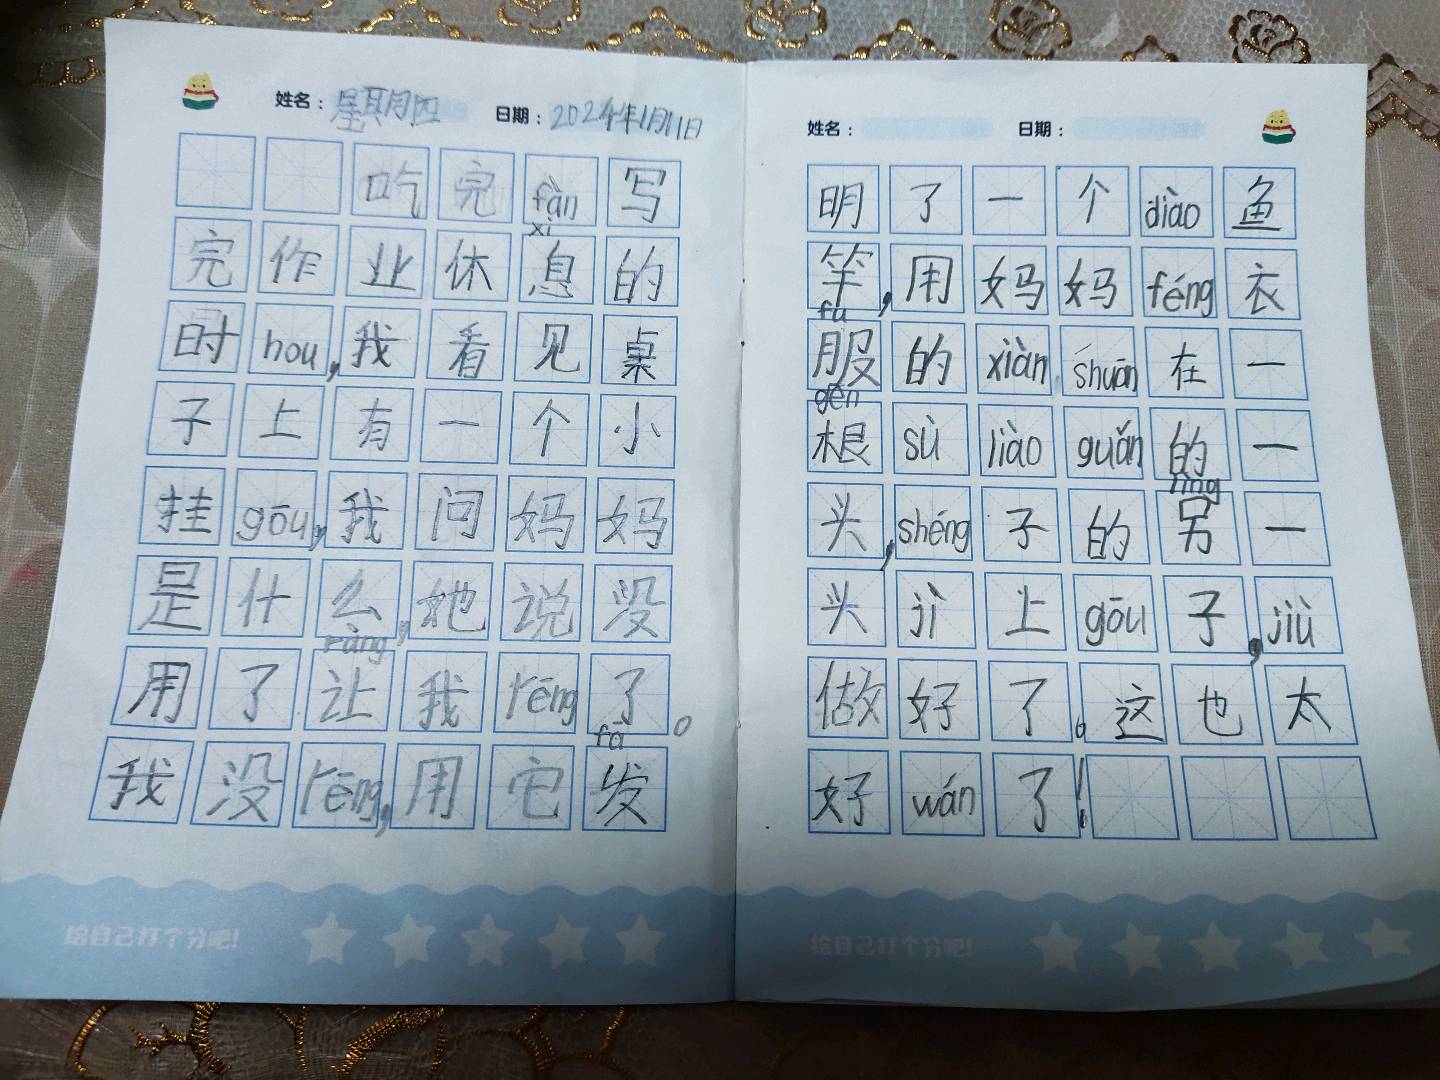 姓名：星期四 日期：2024年1月11日
吃完fàn写
xi
完作业休息的
时hou，我看见桌
子上有一个小
挂gōu，我问妈妈
是什么，她说没
ràng
用了让我rēng了。
fā
我没rēng，用它发
给自己打个分吧！
姓名： 日期：
明了一个diào鱼
竿，用妈妈féng衣
fu
服的xiàn shuān在一
gēn
根sù liào guǎn的一
lìng
头，shéng子的另一
头jì上gōu子，jiù
做好了。这也太
好wán了！
给自己打个分吧！